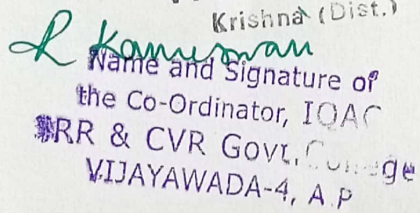 Krishna (Dist.)
R Kameswari
Name and Signature of
the Co-Ordinator, IQAC
SRR & CVR Govt. College
VIJAYAWADA-4, A.P